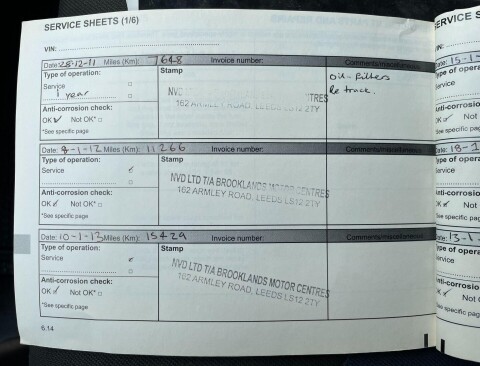 SERVICE SHEETS (1/6)
VIN:
Date: 28-12-11 Miles (Km): 7648 Invoice number: Comments/miscellaneous
Type of operation: Stamp
Service
1 year
Anti-corrosion check:
OK ✓ Not OK*
*See specific page
NVD MOTOR CENTRES
162 ARMLEY ROAD, LEEDS LS12 2TY
Oil-filters
Date: 8-1-12 Miles (Km): 11266 Invoice number: Comments/miscellaneous
Type of operation: Stamp
Service
Anti-corrosion check:
OK Not OK*
*See specific page
NVD LTD T/A BROOKLANDS MOTOR CENTRES
162 ARMLEY ROAD, LEEDS LS12 2TY
Date: 10-1-13 Miles (Km): 15429 Invoice number: Comments/miscellaneous
Type of operation: Stamp
Service
Anti-corrosion check:
OK Not OK*
*See specific page
NVD LTD T/A BROOKLANDS MOTOR CENTRES
162 ARMLEY ROAD, LEEDS LS12 2TY
6.14
SERVICE S
Date: 15-1-
Type of opera
Service
Anti-corrosion
OK Not
*See specific
Date: 18-1
Type of opera
Service
Anti-corrosio
OK Not
*See specific
Date: 13-1
Type of opera
Service
Anti-corros
OK Not
*See specific